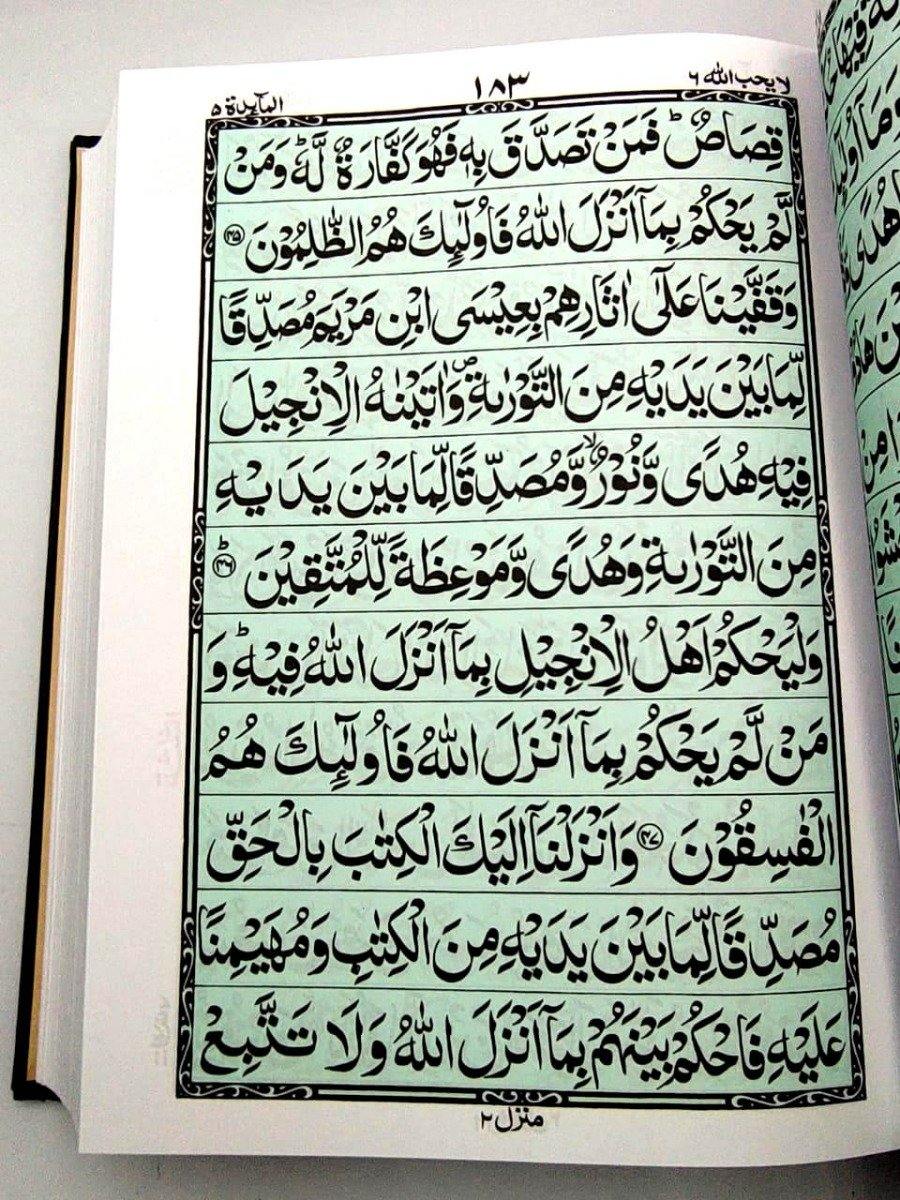 لا يحب الله ٦ ١٨٣ المآىِٕدة ٥
قِصَاصٌ ؕ فَمَنْ تَصَدَّقَ بِهٖ فَهُوَ كَفَّارَةٌ لَّهٗ ؕ وَمَنْ
لَّمْ يَحْكُمْ بِمَاۤ اَنْزَلَ اللّٰهُ فَاُولٰٓىِٕكَ هُمُ الظّٰلِمُوْنَ ﴿۴۵﴾
وَقَفَّيْنَا عَلٰۤى اٰثَارِهِمْ بِعِيْسَى ابْنِ مَرْيَمَ مُصَدِّقًا
لِّمَا بَيْنَ يَدَيْهِ مِنَ التَّوْرٰىةِ ۪ وَاٰتَيْنٰهُ الْاِنْجِيْلَ
فِيْهِ هُدًى وَّنُوْرٌ ۙ وَّمُصَدِّقًا لِّمَا بَيْنَ يَدَيْهِ
مِنَ التَّوْرٰىةِ وَهُدًى وَّمَوْعِظَةً لِّلْمُتَّقِيْنَ ؕ﴿۴۶﴾
وَلْيَحْكُمْ اَهْلُ الْاِنْجِيْلِ بِمَاۤ اَنْزَلَ اللّٰهُ فِيْهِ ؕ وَ
مَنْ لَّمْ يَحْكُمْ بِمَاۤ اَنْزَلَ اللّٰهُ فَاُولٰٓىِٕكَ هُمُ
الْفٰسِقُوْنَ ﴿۴۷﴾ وَاَنْزَلْنَاۤ اِلَيْكَ الْكِتٰبَ بِالْحَقِّ
مُصَدِّقًا لِّمَا بَيْنَ يَدَيْهِ مِنَ الْكِتٰبِ وَمُهَيْمِنًا
عَلَيْهِ فَاحْكُمْ بَيْنَهُمْ بِمَاۤ اَنْزَلَ اللّٰهُ وَلَا تَتَّبِعْ
منزل ٢